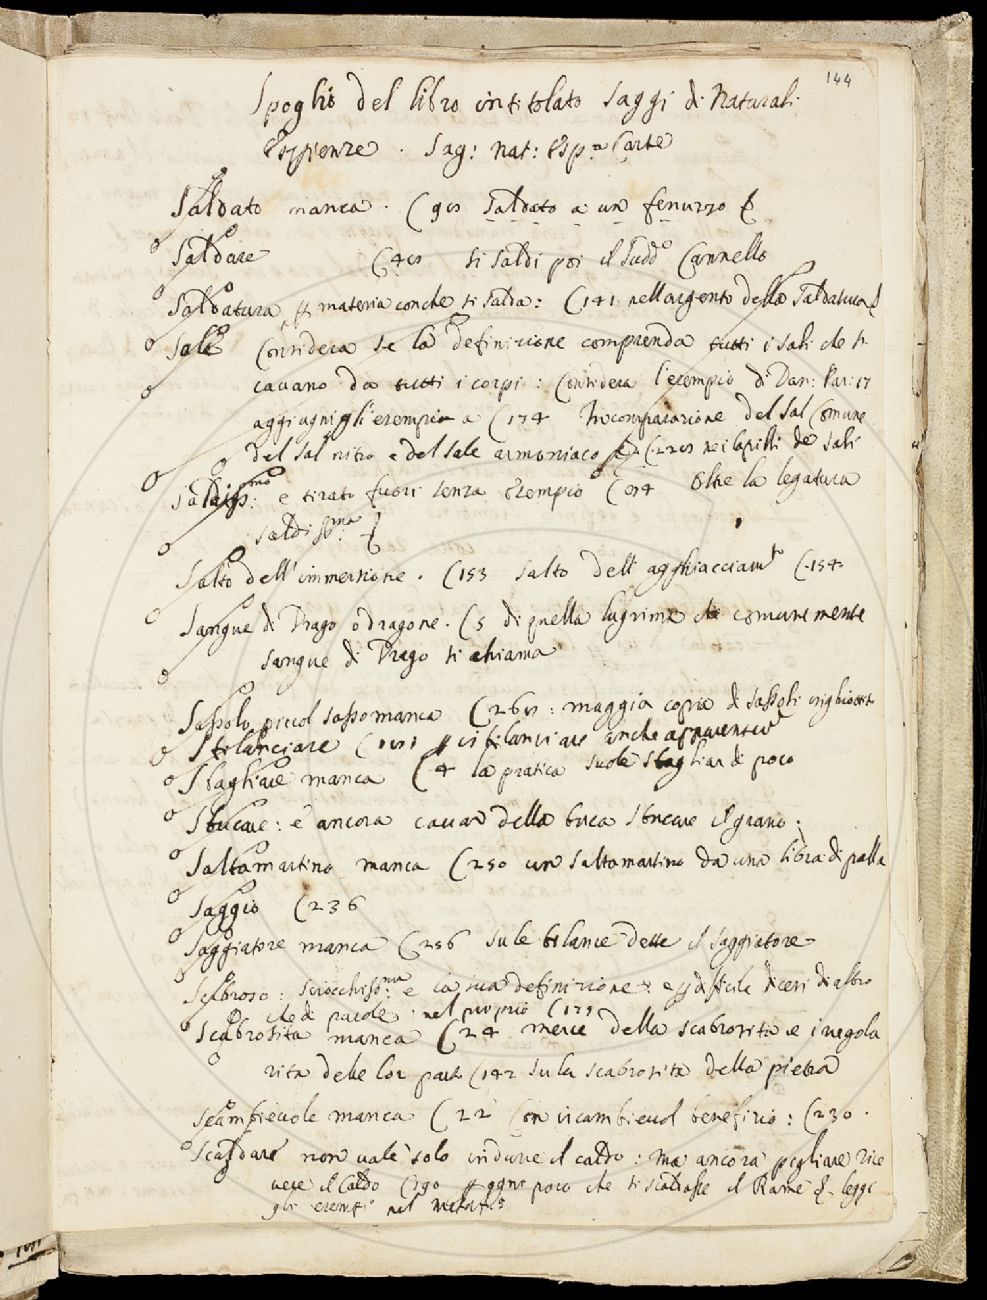 144
Spoglio del libro intitolato Saggi di Naturali
Esperienze. Sag: Nat: Esp.a Carte
Saldato manca. (90 Saldato a un fenuzzo
Saldare (40 si saldi poi il sudd.o Cannello
Saldatura materia con che si salda: (141 nell argento della Saldatura
Sale Considera se la definizione comprenda tutti i sali che si
cavano da tutti i corpi: Considera l'esempio di Dan: Par: 17
aggiugni gli esempi a (174 In comparazione del sal Comune
del sal nitro e del sale armoniaco (220 ne i Capelli de sali
Saldiss.mo: e tirato fuori senza esempio Oltre la legatura
saldiss.ma:
Salto dell'immersione. (153 salto dell agghiacciam.to (154
Sangue di Drago o dragone. (5 di quella lagrima che comunemente
sangue di Drago si chiama
Sassolo piccol sasso manca (260: maggia copia di sassoli
Sbilanciare sbilanciare anche
Sbagliare manca (4 la pratica suole sbagliar di poco
Sbucare: è ancora cavar della buca sbucare il grano:
Saltamartino manca (250 un saltamartino da una libra di palla
Saggio (236
Saggiatore manca (256 su le bilance dette il saggiatore
Scabroso: e la sua definizione: difficile di altro
che di parole. nel proprio (175
Scabrosità manca (24 merce della scabrosità e irregola
rità delle lor parti (142 su la scabrosità della pietra
Scambievole manca (22 Con iscambievol benefizio: (230.
Scaldare non vale solo indurre il caldo: ma ancora pigliare rice
vere il Caldo (190 ogni poco che si scaldasse il Rame leggi
gli esempi nel